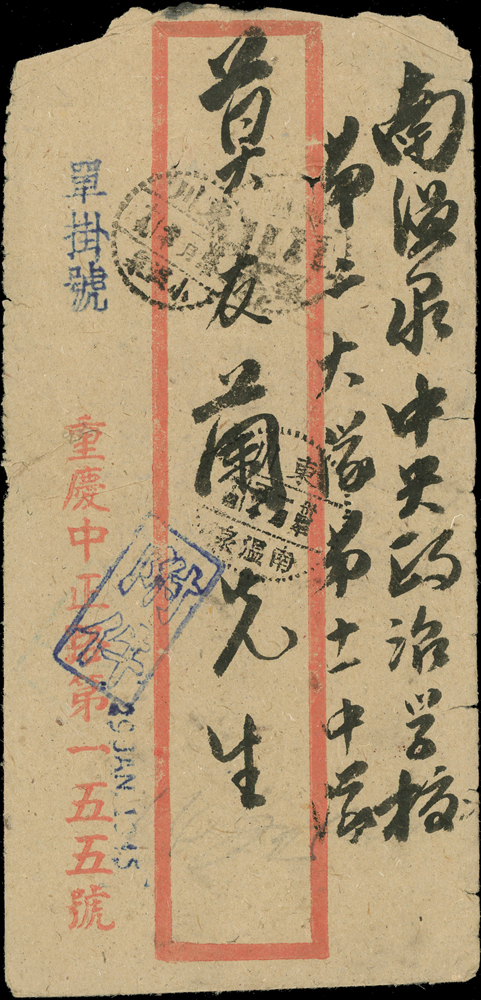 南溫泉中央政治学校
第二大隊第十一中隊
莫友蘭先生
單掛號
重慶中正路第一五五號
29 JAN 1945
東川
南溫泉